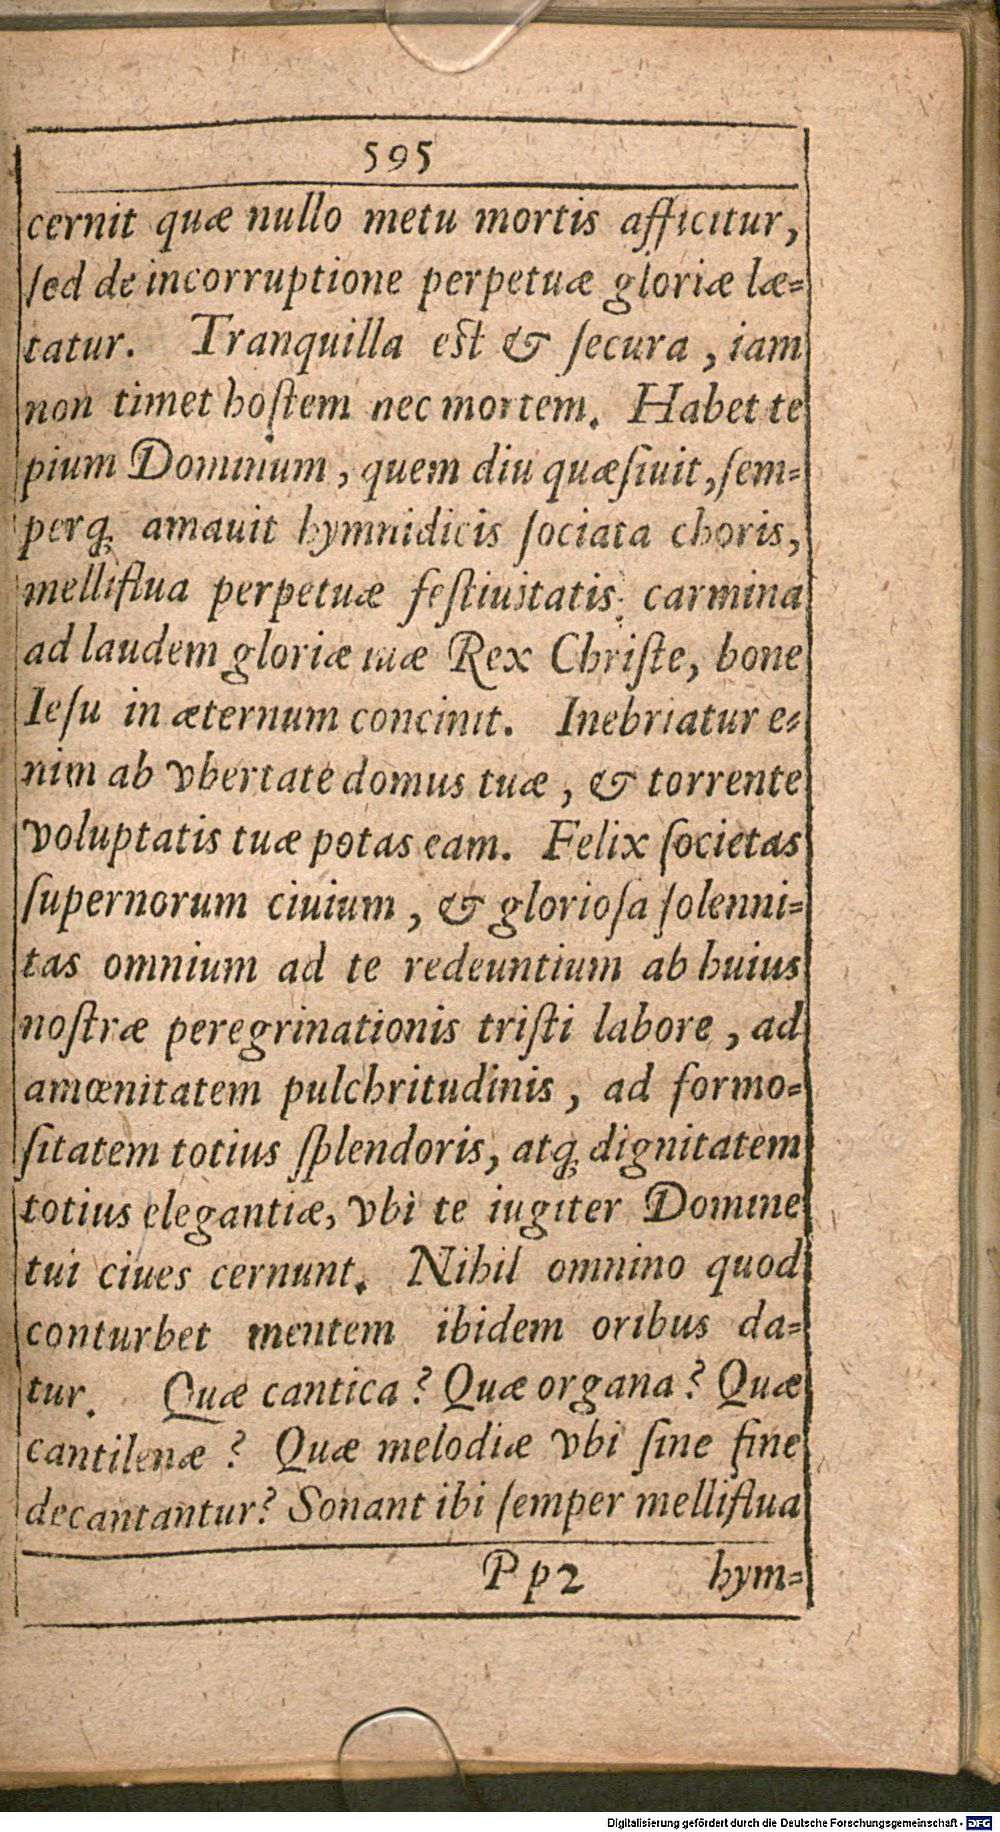 595
cernit quæ nullo metu mortis afficitur,
ſed de incorruptione perpetuæ gloriæ læ-
tatur. Tranquilla eſt & ſecura, iam
non timet hoſtem nec mortem. Habet te
pium Dominum, quem diu quæſiuit, ſem-
perq; amauit hymnidicis ſociata choris,
melliflua perpetuæ feſtiuitatis carmina
ad laudem gloriæ tuæ Rex Chriſte, bone
Ieſu in æternum concinit. Inebriatur e-
nim ab vbertate domus tuæ, & torrente
voluptatis tuæ potas eam. Felix ſocietas
ſupernorum ciuium, & glorioſa ſolenni-
tas omnium ad te redeuntium ab huius
noſtræ peregrinationis triſti labore, ad
amœnitatem pulchritudinis, ad formo-
ſitatem totius ſplendoris, atq; dignitatem
totius elegantiæ, vbi te iugiter Domine
tui ciues cernunt. Nihil omnino quod
conturbet mentem ibidem oribus da-
tur. Quæ cantica? Quæ organa? Quæ
cantilenæ? Quæ melodiæ vbi ſine fine
decantantur? Sonant ibi ſemper melliflua
Pp2 hym-
Digitalisierung gefördert durch die Deutsche Forschungsgemeinschaft - DFG